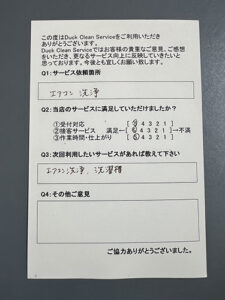 この度はDuck Clean Serviceをご利用いただき
ありがとうございます。
Duck Clean Serviceではお客様の貴重なご意見、ご感想
をいただき、更なるサービス向上に反映していきたいと
思っております。今後とも宜しくお願い致します。
Q1:サービス依頼箇所
エアコン 洗浄
Q2:当店のサービスに満足していただけましたか？
①受付対応 ⑤ 4 3 2 1
②接客サービス 満足←⑤ 4 3 2 1→不満
③作業時間・仕上がり ⑤ 4 3 2 1
Q3:次回利用したいサービスがあれば教えて下さい
エアコン洗浄、洗濯槽
Q4:その他ご意見
ご協力ありがとうございました。